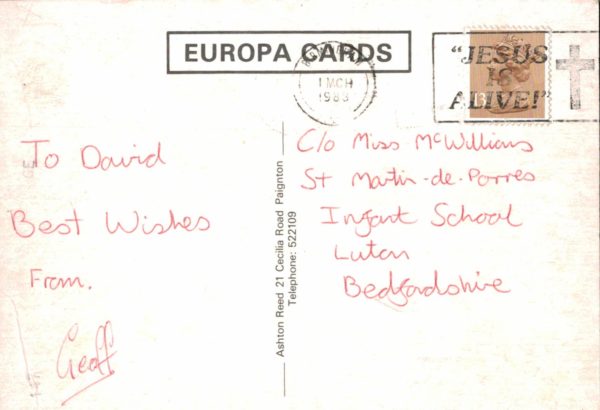 EUROPA CARDS
1 MCH
1988
"JESUS
IS
ALIVE!"
13
To David
Best Wishes
From.
Geoff
Ashton Reed 21 Cecilia Road Paignton
Telephone: 522109
C/o Miss McWilliams
St Martin-de-Porres
Infant School
Luton
Bedfordshire